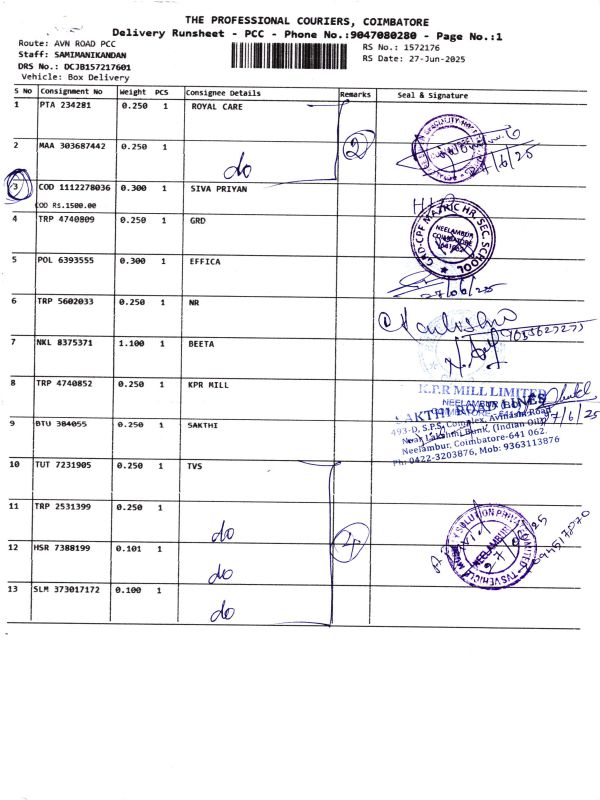 THE PROFESSIONAL COURIERS, COIMBATORE
Delivery Runsheet - PCC - Phone No.:9047080280 - Page No.:1
Route: AVN ROAD PCC
Staff: SAMIMANIKANDAN
DRS No.: DCJB157217601
Vehicle: Box Delivery
RS No.: 1572176
RS Date: 27-Jun-2025
S No Consignment No Weight PCS Consignee Details Remarks Seal & Signature
1 PTA 234281 0.250 1 ROYAL CARE
2 MAA 303687442 0.250 1 do
2
27/6/25
3 COD 1112278036 0.300 1 SIVA PRIYAN
COD RS.1500.00
4 TRP 4740809 0.250 1 GRD
GRD-CPF MATRIC HR. SEC. SCHOOL
NEELAMBUR
COIMBATORE
641 062
5 POL 6393555 0.300 1 EFFICA
27/06/25
6 TRP 5602033 0.250 1 NR
7 NKL 8375371 1.100 1 BEETA
8 TRP 4740852 0.250 1 KPR MILL
K.P.R MILL LIMITED
NEELAMBUR (BO)
9 BTU 384055 0.250 1 SAKTHI
SAKTHI ROAD LINES
493-D, S.P.S. Complex, Avinashi Road
Near Lakshmi Bunk, (Indian Oil)
Neelambur, Coimbatore-641 062.
Ph: 0422-3203876, Mob: 9363113876
27/6/25
10 TUT 7231905 0.250 1 TVS
11 TRP 2531399 0.250 1 do
12 HSR 7388199 0.101 1 do
13 SLM 373017172 0.100 1 do
4
TVS VEHICLE MOBILITY SOLUTION PRIVATE LIMITED
NEELAMBUR